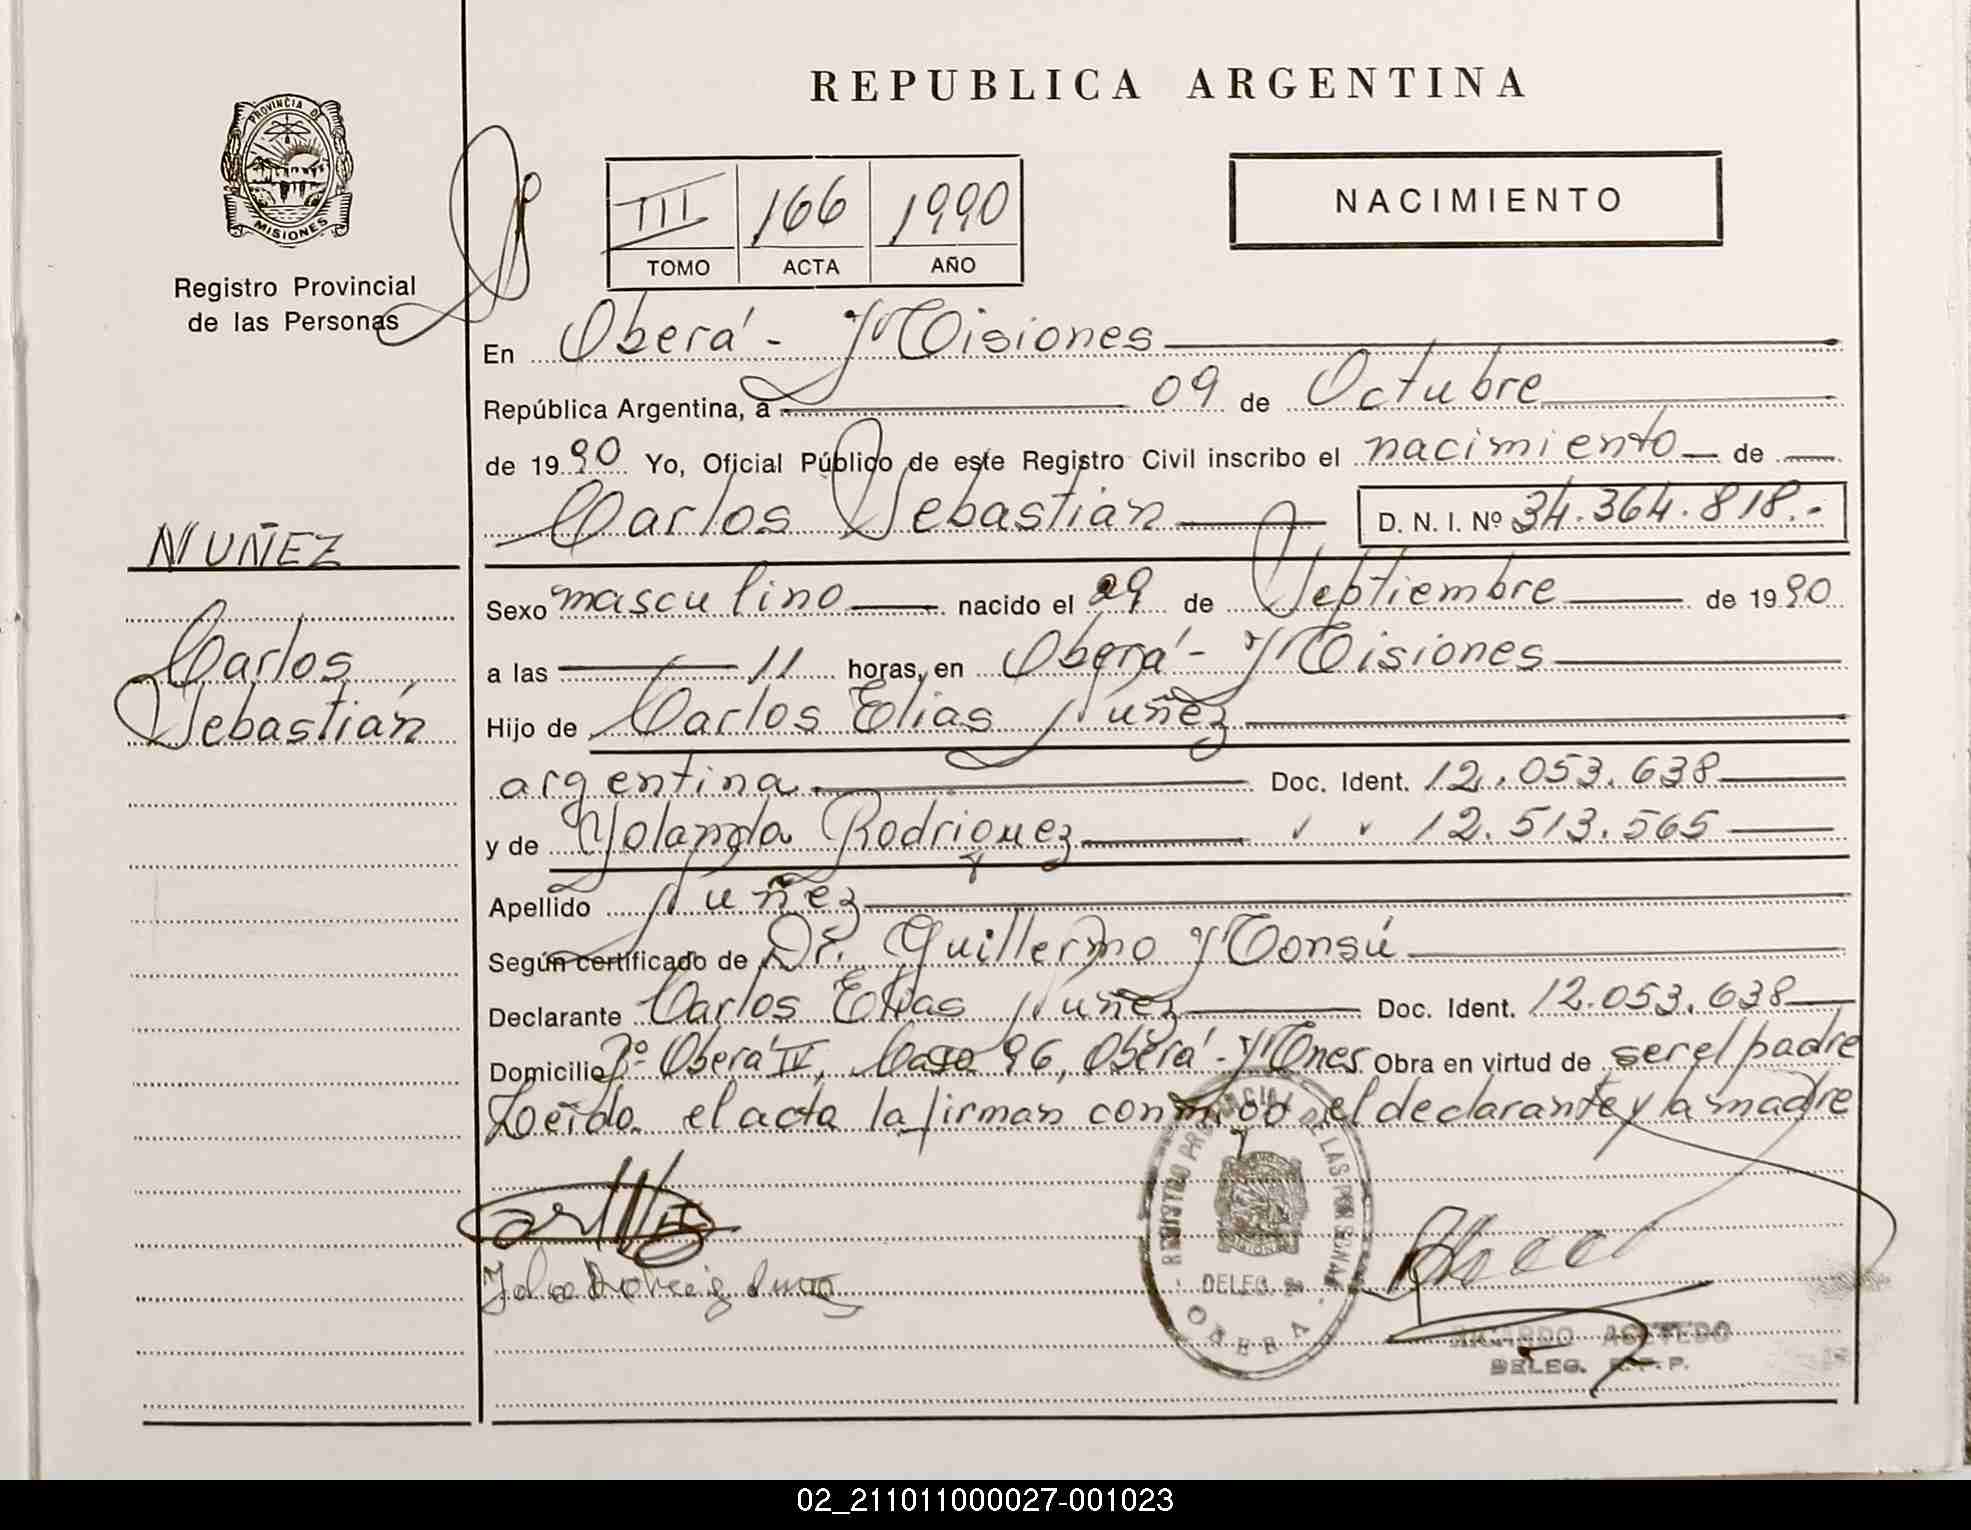 REPUBLICA ARGENTINA
PROVINCIA DE
MISIONES
Registro Provincial
de las Personas
III 166 1990
TOMO ACTA AÑO
NACIMIENTO
En Oberá - Misiones
República Argentina, a 09 de Octubre
de 1990 Yo, Oficial Público de este Registro Civil inscribo el nacimiento de
Carlos Sebastián D. N. I. Nº 34.364.818.-
NUÑEZ
Carlos
Sebastián
Sexo masculino nacido el 29 de Septiembre de 1990
a las 11 horas, en Oberá - Misiones
Hijo de Carlos Elias Nuñez
argentina Doc. Ident. 12.053.638
y de Yolanda Rodriguez " " 12.513.565
Apellido Nuñez
Según certificado de Dr. Guillermo Monsú
Declarante Carlos Elias Nuñez Doc. Ident. 12.053.638
Domicilio Bº Oberá IV, Casa 96, Oberá - Mnes Obra en virtud de ser el padre
Leído el acta la firman conmigo el declarante y la madre
REGISTRO PROVINCIAL DE LAS PERSONAS
DELEG.
OBERA
RICARDO ACEVEDO
DELEG. R. P. P.
02_211011000027-001023